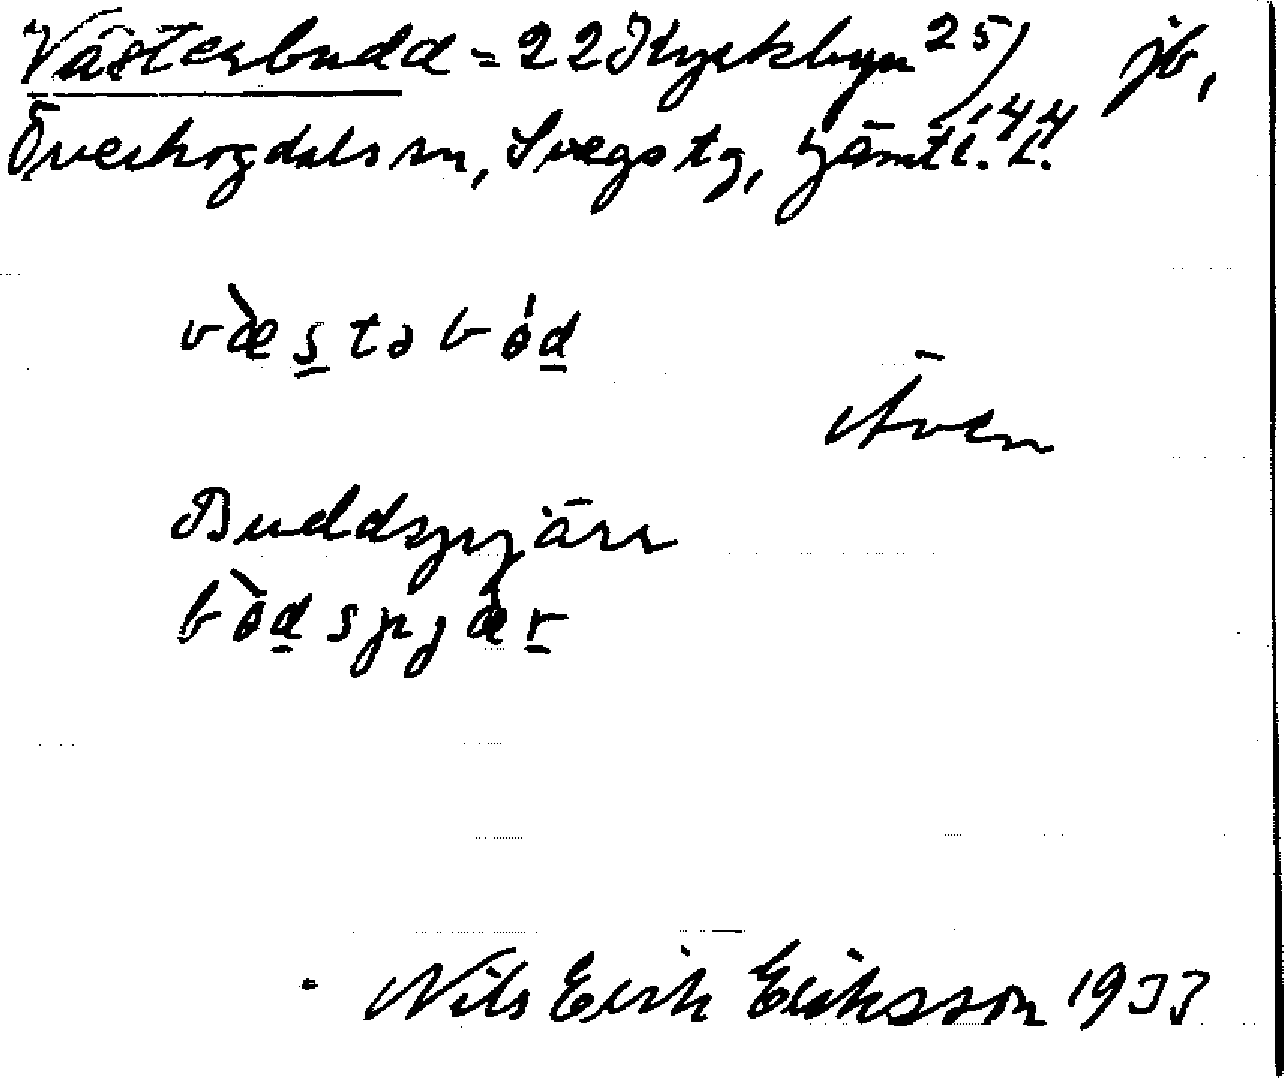 Västerbudd = 22 Kyrkbyn 25/44 jb,
Överhogdals sn, Svegs tg, Jämtl. L.
væ̀stəbód
Även
Buddspjärr
bòdspjær
Nils Erik Eriksson 1933